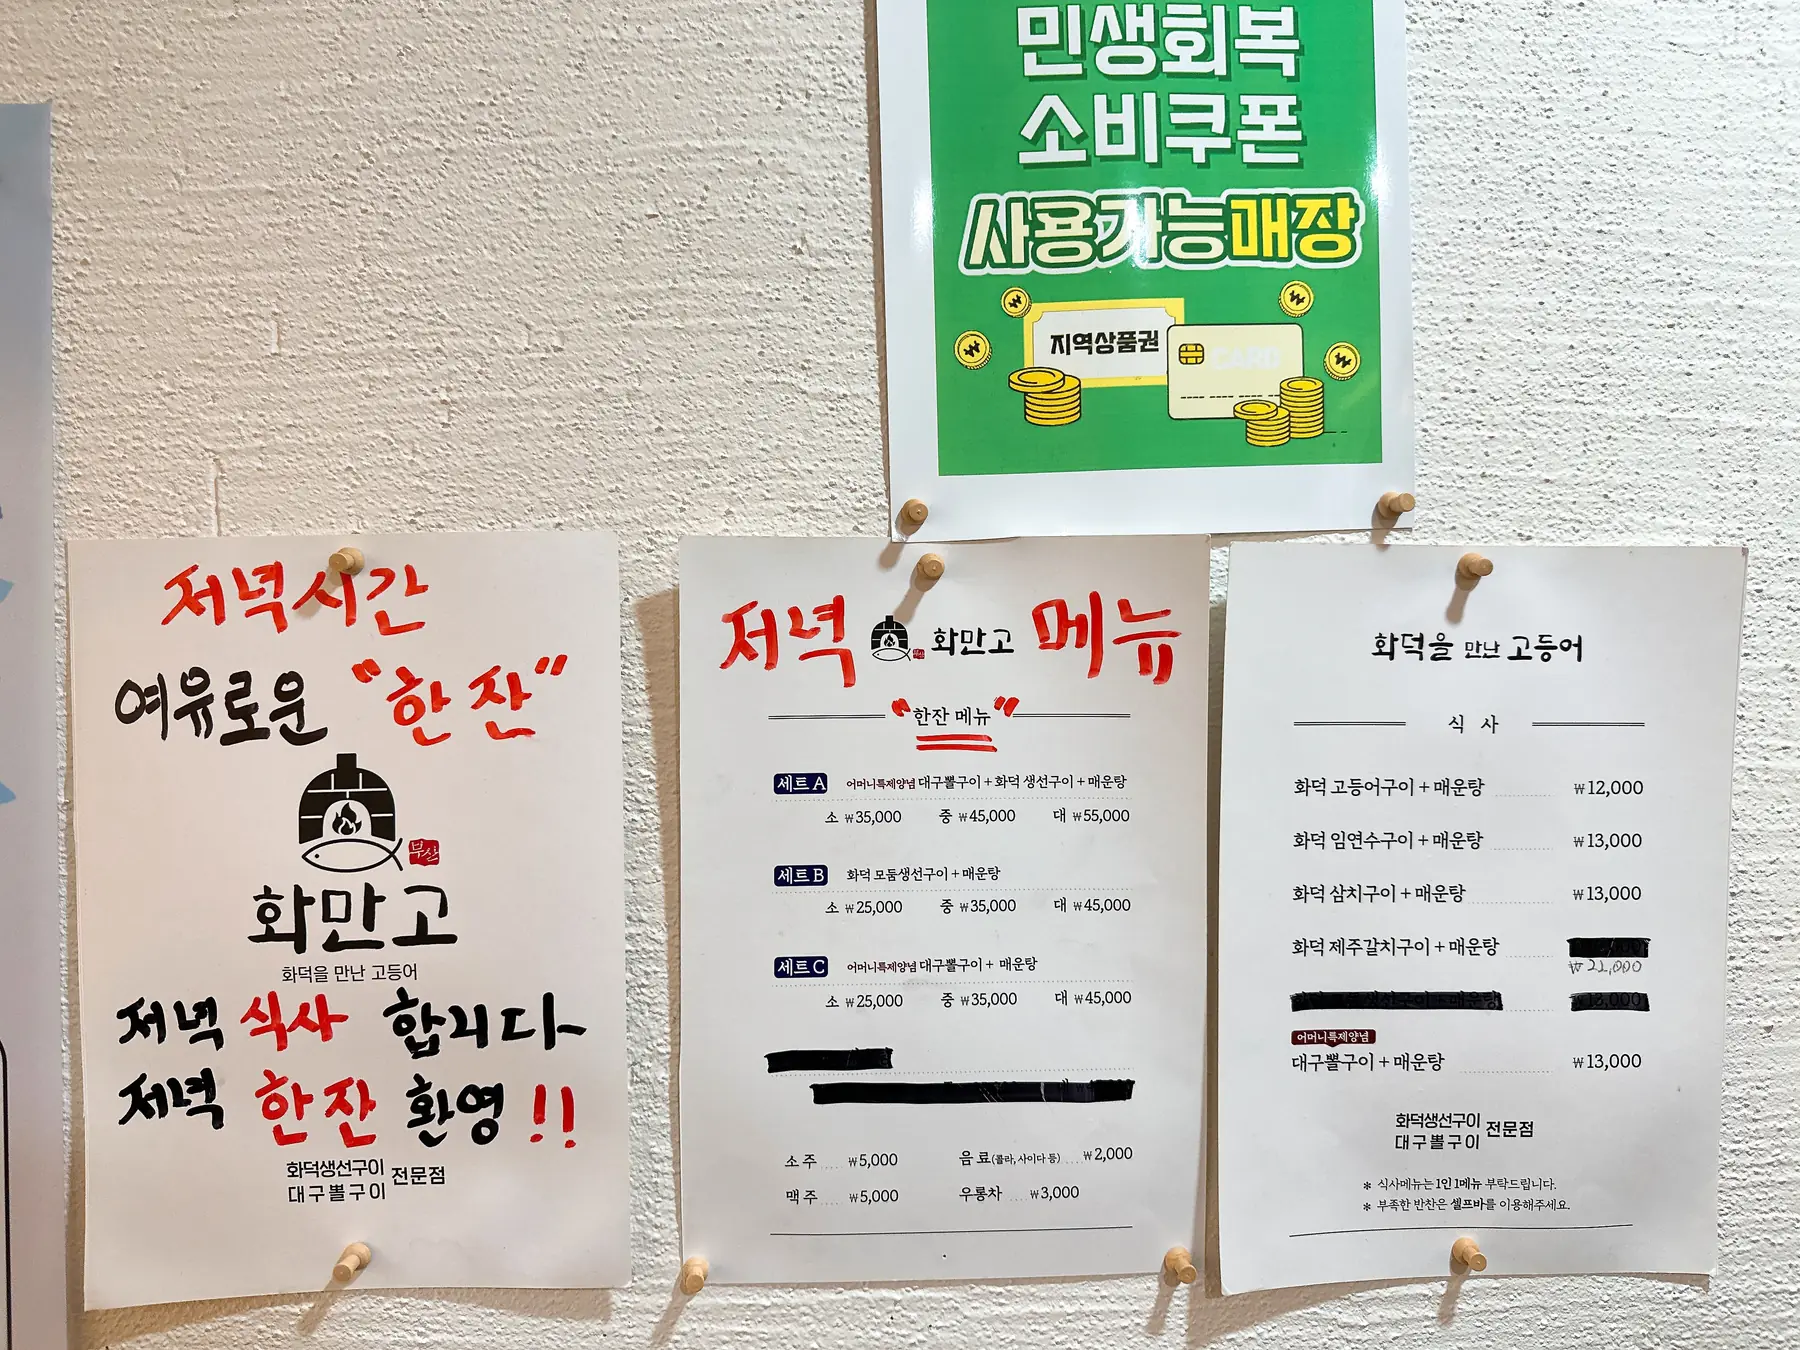 민생회복
소비쿠폰
사용가능매장
지역상품권
CARD
저녁시간
여유로운 "한잔"
부산
화만고
화덕을 만난 고등어
저녁 식사 합니다~
저녁 한잔 환영!!
화덕생선구이
대구뽈구이
전문점
저녁 화만고 메뉴
"한잔 메뉴"
세트 A 어머니특제양념 대구뽈구이 + 화덕 생선구이 + 매운탕
소 ₩35,000 중 ₩45,000 대 ₩55,000
세트 B 화덕 모둠생선구이 + 매운탕
소 ₩25,000 중 ₩35,000 대 ₩45,000
세트 C 어머니특제양념 대구뽈구이 + 매운탕
소 ₩25,000 중 ₩35,000 대 ₩45,000
소주 .... ₩5,000 음료(콜라, 사이다 등) .... ₩2,000
맥주 .... ₩5,000 우롱차 .... ₩3,000
화덕을 만난 고등어
식 사
화덕 고등어구이 + 매운탕 ₩12,000
화덕 임연수구이 + 매운탕 ₩13,000
화덕 삼치구이 + 매운탕 ₩13,000
화덕 제주갈치구이 + 매운탕
₩21,000
어머니특제양념
대구뽈구이 + 매운탕 ₩13,000
화덕생선구이
대구뽈구이
전문점
* 식사메뉴는 1인 1메뉴 부탁드립니다.
* 부족한 반찬은 셀프바를 이용해주세요.